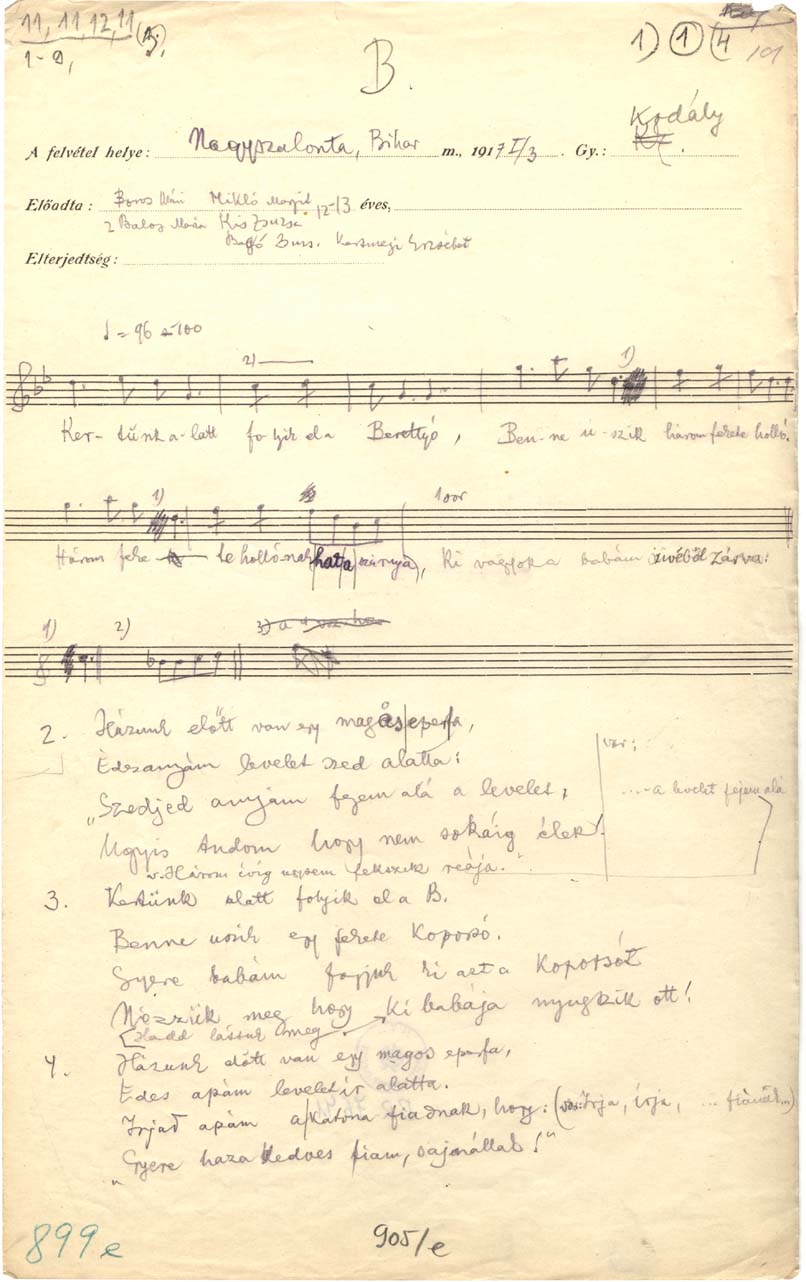 11, 11, 12, 11 (5,
1-9,
B.
1) 1 (4
101
A felvétel helye: Nagyszalonta, Bihar m., 1917 I/3. Gy.: Kodály
Előadta: Boros Mári Mikló Margit 12-13 éves,
2 Balog Mária Kis Zsuzsa
Elterjedtség: Zsuzs. Erzsébet
♩ = 96 - 100
2)
1)
Ker- tünk a-latt fo-lyik el a Berettyó, Ben-ne u-szik három fekete holló.
1)
1 sor
Három feke te hollónak hat a szárnya, Ki vagyok a babám szivéből zárva:
1) 2) 3)
2. Házunk előtt van egy magas eperfa,
Édesanyám levelet szed alatta:
„Szedjed anyám fejem alá a levelet,
Ugyis tudom hogy nem sokáig élek.
v. Három évig nyugszik reája."
var:
.... a levelet fejem alá
3. Kertünk alatt folyik el a B.
Benne uszik egy fekete koporsó.
Gyere babám fogjuk ki azt a koporsót
Nézzük meg hogy ki babája nyugszik ott!
Hadd lássuk meg
4. Házunk előtt van egy magos eperfa,
Édes apám levelet ír alatta.
Irjad apám a katona fiadnak, hogy: (var: Írja, írja, ... fiának...)
„Gyere haza kedves fiam, sajnállak!"
899e
905/e